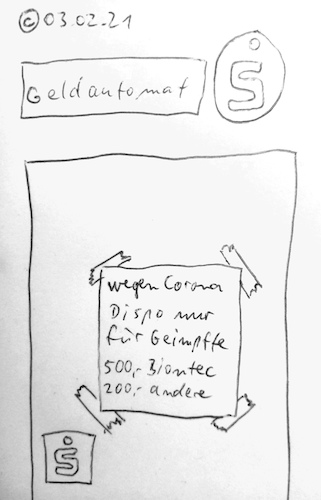 © 03.02.21
Geldautomat
S
wegen Corona
Dispo nur
für Geimpfte
500,- Biontec
200,- andere
S